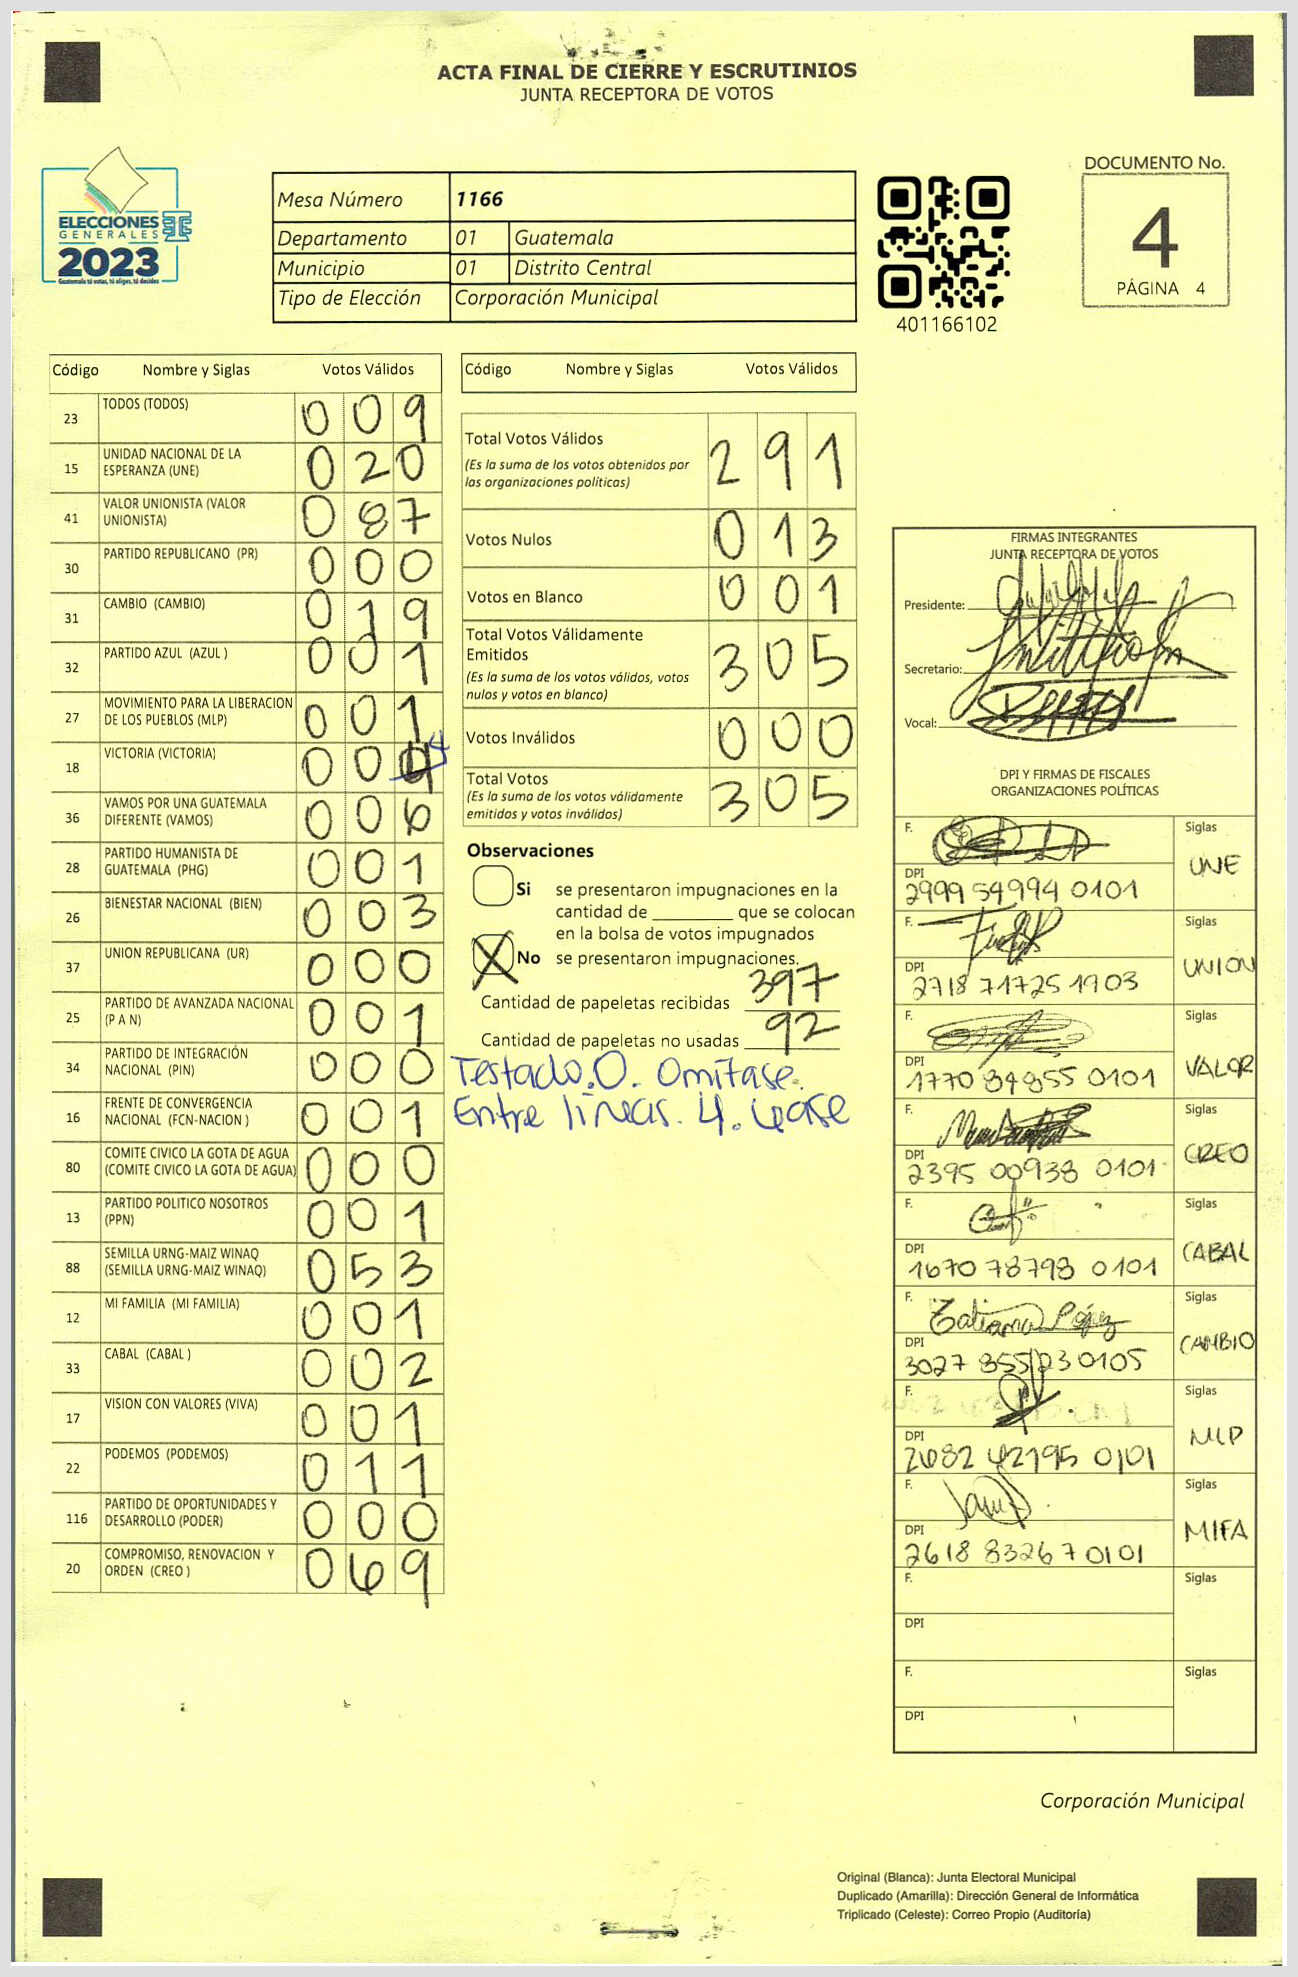 ACTA FINAL DE CIERRE Y ESCRUTINIOS
JUNTA RECEPTORA DE VOTOS
ELECCIONES
GENERALES
2023
Guatemala tú votas, tú eliges, tú decides
Mesa Número 1166
Departamento 01 Guatemala
Municipio 01 Distrito Central
Tipo de Elección Corporación Municipal
401166102
DOCUMENTO No.
4
PÁGINA 4
Código Nombre y Siglas Votos Válidos
23 TODOS (TODOS) 0 0 9
15 UNIDAD NACIONAL DE LA
ESPERANZA (UNE) 0 2 0
41 VALOR UNIONISTA (VALOR
UNIONISTA) 0 8 7
30 PARTIDO REPUBLICANO (PR) 0 0 0
31 CAMBIO (CAMBIO) 0 1 9
32 PARTIDO AZUL (AZUL ) 0 0 1
27 MOVIMIENTO PARA LA LIBERACION
DE LOS PUEBLOS (MLP) 0 0 1
18 VICTORIA (VICTORIA) 0 0 4
36 VAMOS POR UNA GUATEMALA
DIFERENTE (VAMOS) 0 0 6
28 PARTIDO HUMANISTA DE
GUATEMALA (PHG) 0 0 1
26 BIENESTAR NACIONAL (BIEN) 0 0 3
37 UNION REPUBLICANA (UR) 0 0 0
25 PARTIDO DE AVANZADA NACIONAL
(P A N) 0 0 1
34 PARTIDO DE INTEGRACIÓN
NACIONAL (PIN) 0 0 0
16 FRENTE DE CONVERGENCIA
NACIONAL (FCN-NACION ) 0 0 1
80 COMITE CIVICO LA GOTA DE AGUA
(COMITE CIVICO LA GOTA DE AGUA) 0 0 0
13 PARTIDO POLITICO NOSOTROS
(PPN) 0 0 1
88 SEMILLA URNG-MAIZ WINAQ
(SEMILLA URNG-MAIZ WINAQ) 0 5 3
12 MI FAMILIA (MI FAMILIA) 0 0 1
33 CABAL (CABAL ) 0 0 2
17 VISION CON VALORES (VIVA) 0 0 1
22 PODEMOS (PODEMOS) 0 1 1
116 PARTIDO DE OPORTUNIDADES Y
DESARROLLO (PODER) 0 0 0
20 COMPROMISO, RENOVACION Y
ORDEN (CREO ) 0 6 9
Código Nombre y Siglas Votos Válidos
Total Votos Válidos 2 9 1
(Es la suma de los votos obtenidos por
las organizaciones políticas)
Votos Nulos 0 1 3
Votos en Blanco 0 0 1
Total Votos Válidamente
Emitidos 3 0 5
(Es la suma de los votos válidos, votos
nulos y votos en blanco)
Votos Inválidos 0 0 0
Total Votos 3 0 5
(Es la suma de los votos válidamente
emitidos y votos inválidos)
Observaciones
Si se presentaron impugnaciones en la
cantidad de ________ que se colocan
en la bolsa de votos impugnados
X No se presentaron impugnaciones.
Cantidad de papeletas recibidas 397
Cantidad de papeletas no usadas 92
Testado.0. Omitase.
Entre lineas. 4. Lease
FIRMAS INTEGRANTES
JUNTA RECEPTORA DE VOTOS
Presidente:
Secretario:
Vocal:
DPI Y FIRMAS DE FISCALES
ORGANIZACIONES POLÍTICAS
F. Siglas
DPI UNE
2999 54994 0101
F. Siglas
DPI UNION
2718 71725 1903
F. Siglas
DPI VALOR
1770 84855 0101
F. Siglas
DPI CREO
2395 00938 0101
F. Siglas
DPI CABAL
1670 78798 0101
F. Tatiana López Siglas
DPI CAMBIO
3027 855123 0105
F. Siglas
DPI MLP
2682 42795 0101
F. Siglas
DPI MIFA
2618 83267 0101
F. Siglas
DPI
F. Siglas
DPI
Corporación Municipal
Original (Blanca): Junta Electoral Municipal
Duplicado (Amarilla): Dirección General de Informática
Triplicado (Celeste): Correo Propio (Auditoría)